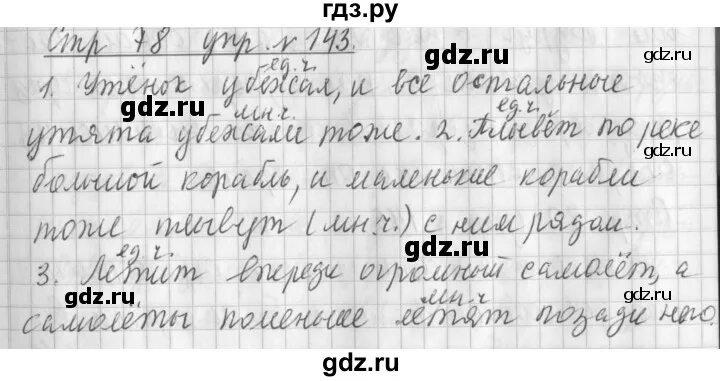 гдз.ру
Стр 78 упр. № 143.
ед.ч.
1. Утёнок убежал, и все остальные
мн.ч. ед.ч.
утята убежали тоже. 2. Плывёт по реке
большой корабль, и маленькие корабли
тоже плывут (мн.ч.) с ним рядом.
ед.ч.
3. Летит впереди огромный самолёт, а
мн.ч
самолёты поменьше летят позади него.
gdz.ru gdz.ru
gdz.ru gdz.ru
gdz.ru gdz.ru
gdz.ru
gdz.ru
gdz.ru